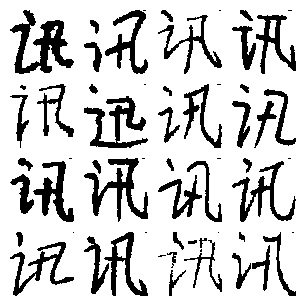 讯讯讯讯
讯迅讯讯
讯讯讯讯
讯讯讯讯